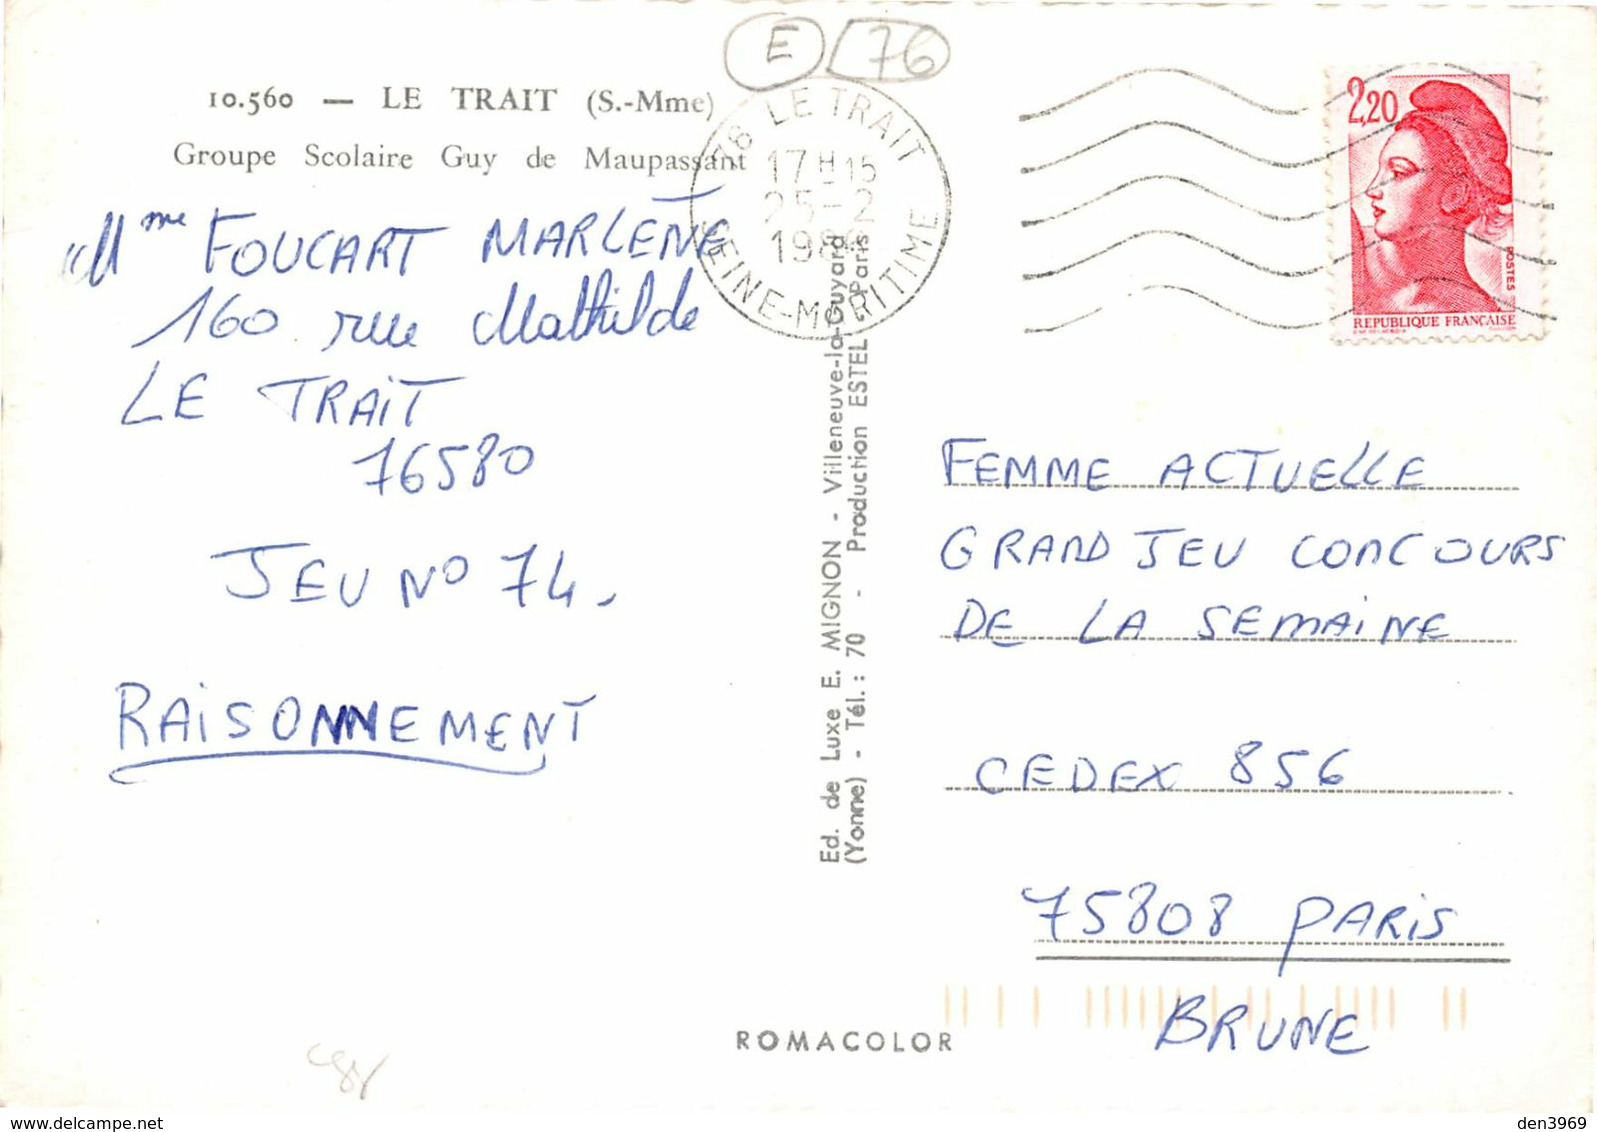 E 76
10.560 — LE TRAIT (S.-Mme)
Groupe Scolaire Guy de Maupassant
76 LE TRAIT
17 H 15
25-2
SEINE-MARITIME
2,20
POSTES
REPUBLIQUE FRANÇAISE
Mme FOUCART MARLENE
160 rue Mathilde
LE TRAiT
76580
JEU No 74.
RAiSONNEMENT
Ed. de Luxe E. MIGNON - Villeneuve-la-Guyard
(Yonne) - Tél. : 70 - Production ESTEL - Paris
FEMME ACTUELLE
GRAND JEU CONCOURS
DE LA SEMAiNE
CEDEX 856
75808 PARiS
BRUNE
ROMACOLOR
den3969